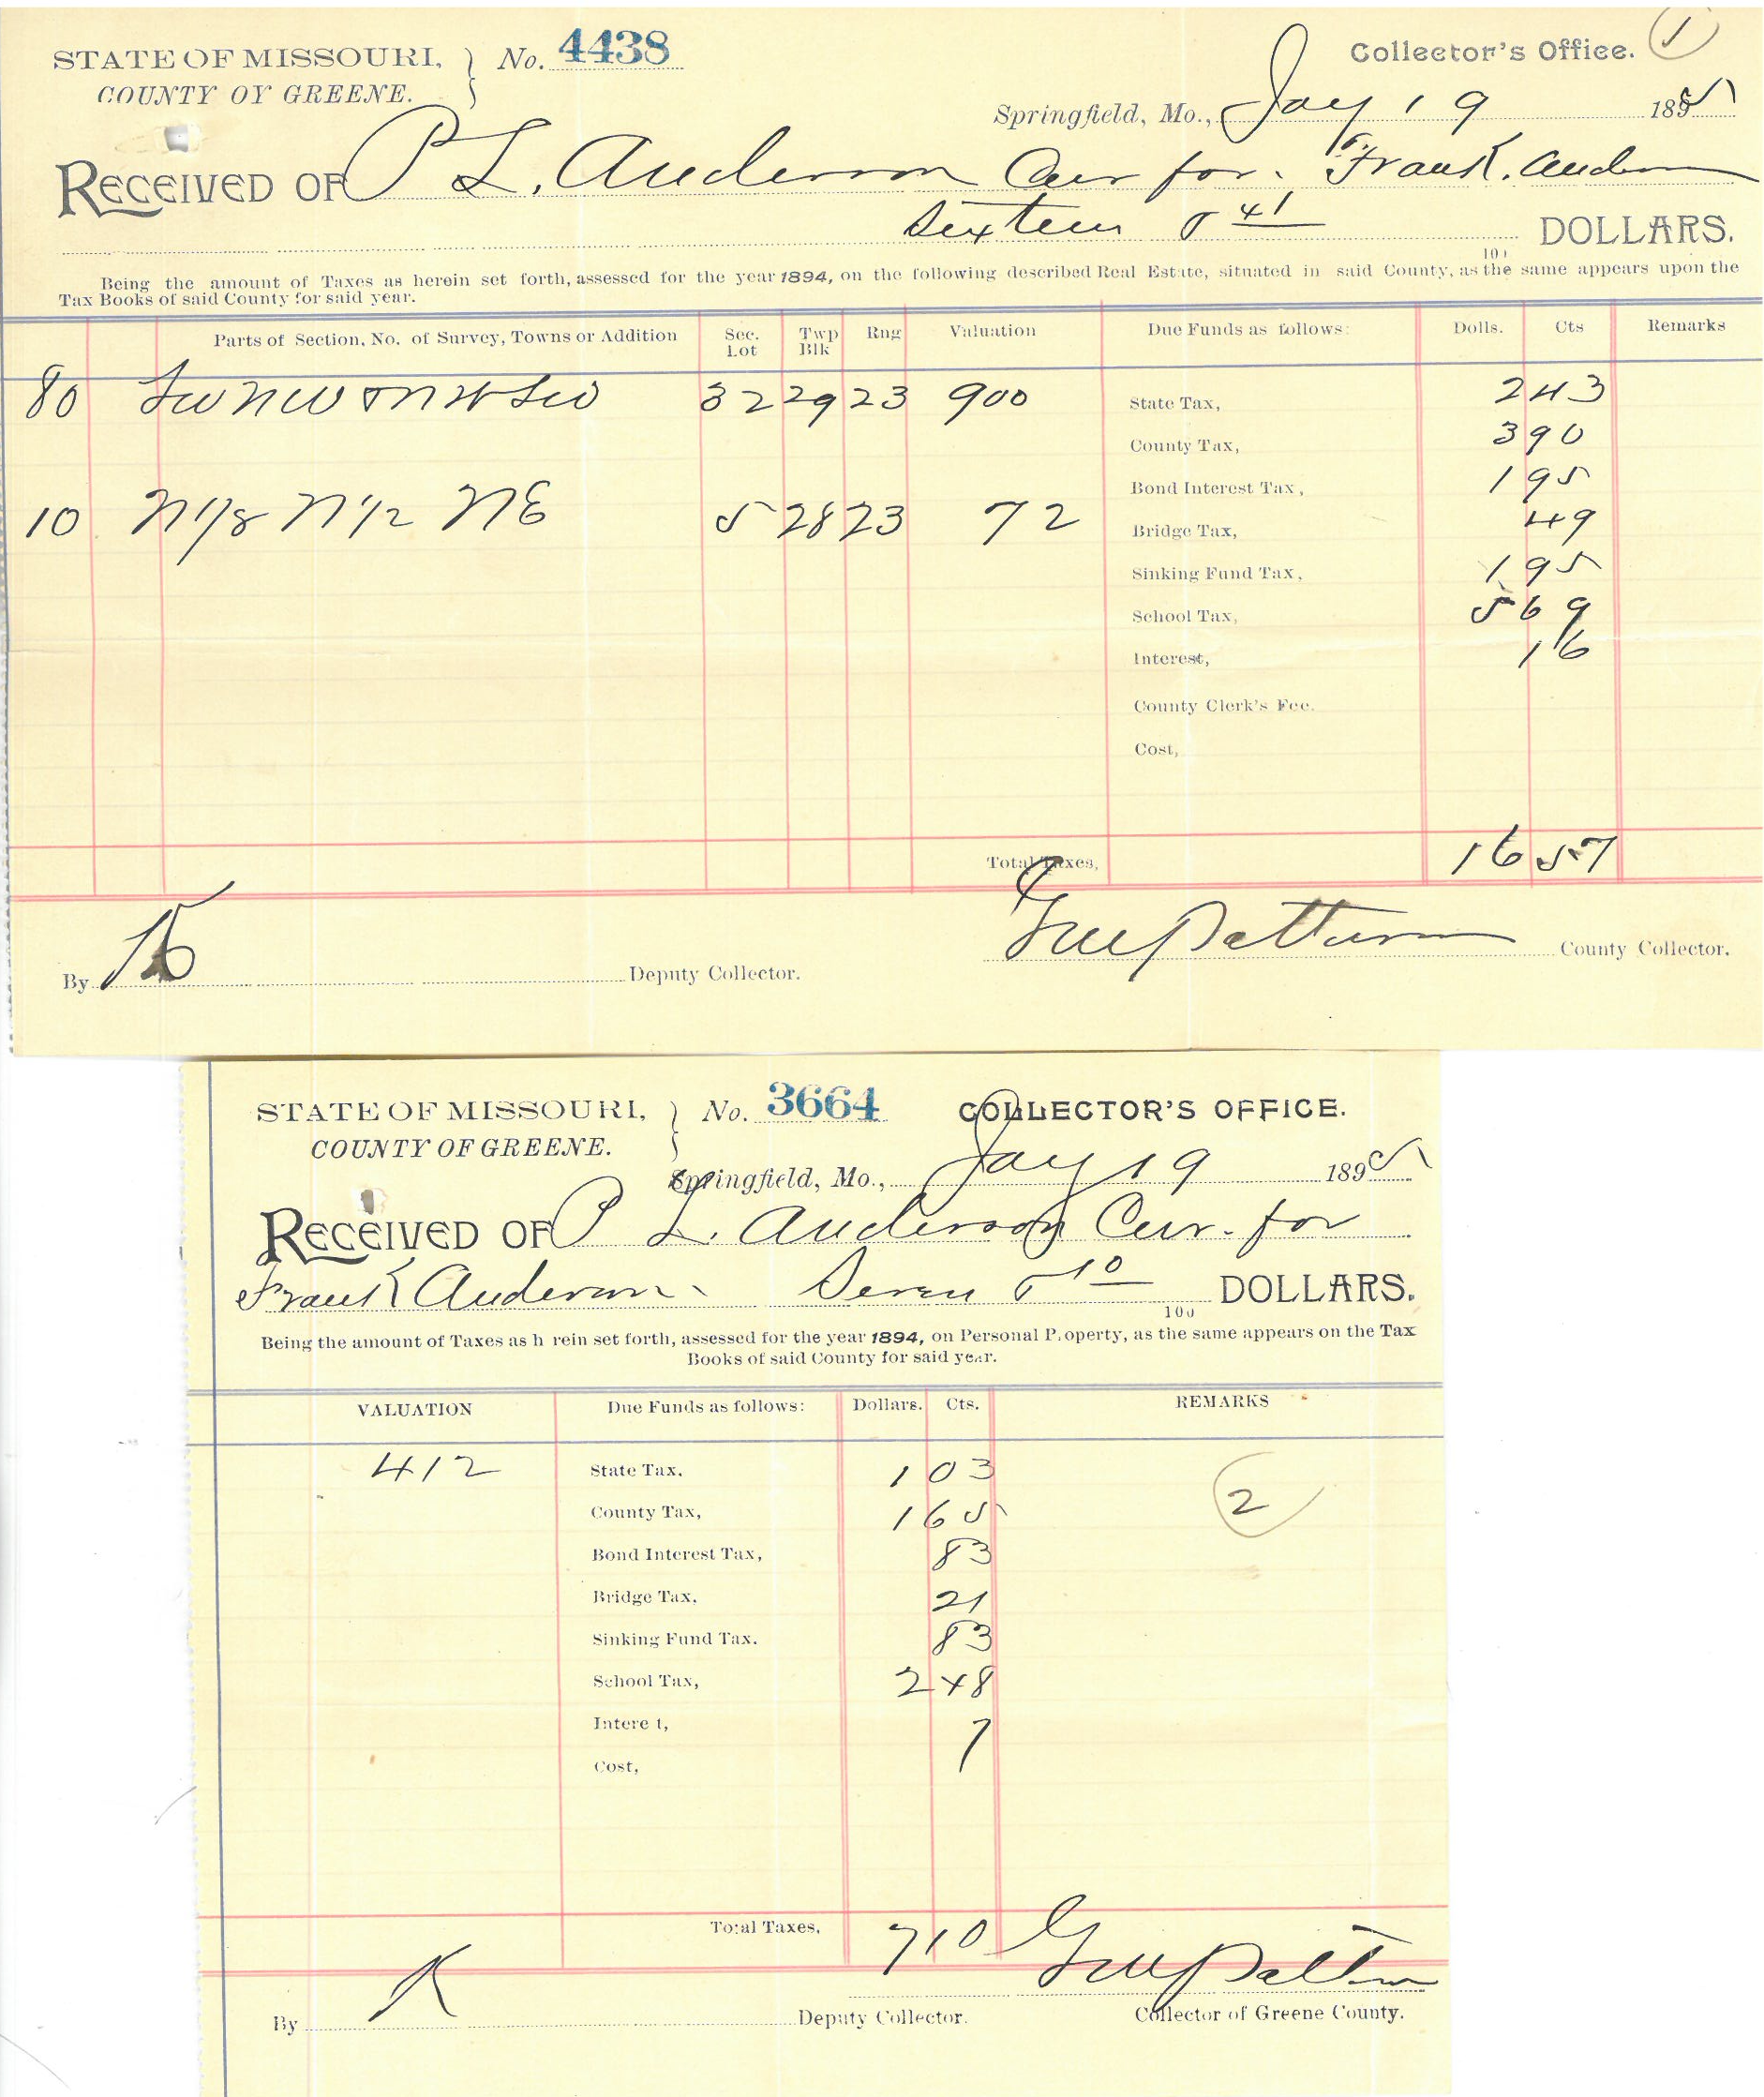 STATE OF MISSOURI, } No. 4438 Collector's Office. 1
COUNTY OY GREENE.
Springfield, Mo., Jay 19 1895
RECEIVED OF P L. Anderson Cur for. Frank. Anderson
Sixteen & 41
100 DOLLARS.
Being the amount of Taxes as herein set forth, assessed for the year 1894, on the following described Real Estate, situated in said County, as the same appears upon the
Tax Books of said County for said year.
Parts of Section, No. of Survey, Towns or Addition Sec. Lot Twp Blk Rng Valuation Due Funds as follows: Dolls. Cts Remarks
80 SW NW & NW SW 32 29 23 900 State Tax, 2 43
County Tax, 3 90
Bond Interest Tax, 1 95
10 N 1/8 N 1/2 NE 5 28 23 72 Bridge Tax, 49
Sinking Fund Tax, 1 95
School Tax, 5 69
Interest, 16
County Clerk's Fee.
Cost,
Total Taxes, 16 57
By Deputy Collector. Patterson County Collector.
STATE OF MISSOURI, } No. 3664 COLLECTOR'S OFFICE.
COUNTY OF GREENE.
Springfield, Mo., Jay 19 1895
RECEIVED OF P L. Anderson Cur. for
Frank Anderson. Seven & 10
100 DOLLARS.
Being the amount of Taxes as h rein set forth, assessed for the year 1894, on Personal Property, as the same appears on the Tax
Books of said County for said year.
VALUATION Due Funds as follows: Dollars. Cts. REMARKS
412 State Tax. 1 03
County Tax, 1 65 2
Bond Interest Tax, 83
Bridge Tax. 21
Sinking Fund Tax. 83
School Tax, 2 48
Intere t, 7
Cost,
Total Taxes, 7 10
Patterson
By K Deputy Collector. Collector of Greene County.